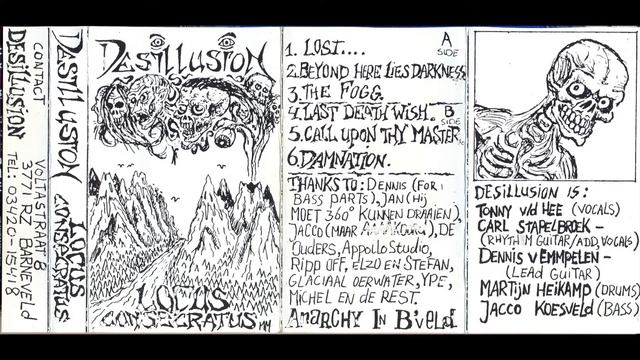 CONTACT
DESILLUSION
VOLTASTRAAT 8
3771 RZ BARNEVELD
TEL: 03420-15418
DESILLUSION LOCUS CONSECRATUS
DESILLUSION
LOCUS
CONSECRATUS
A
SIDE
1. LOST....
2. BEYOND HERE LIES DARKNESS
3. THE FOGG.
4. LAST DEATH WISH.
B
SIDE
5. CALL UPON THY MASTER.
6. DAMNATION.
THANKS TO: DENNIS (FOR
BASS PARTS), JAN (HIJ
MOET 360° KUNNEN DRAAIEN),
JACCO (MAAR), DE
OUDERS, APPOLLO STUDIO,
RIPP OFF, ELZO EN STEFAN,
GLACIAAL OERWATER, YPE,
MICHEL EN DE REST.
ANARCHY IN B'VELD!
DESILLUSION IS:
TONNY V/D HEE (VOCALS)
CARL STAPELBROEK -
(RHYTHM GUITAR/ADD, VOCALS)
DENNIS V EMMPELEN -
(LEAD GUITAR)
MARTIJN HEIKAMP (DRUMS)
JACCO KOESVELD (BASS)